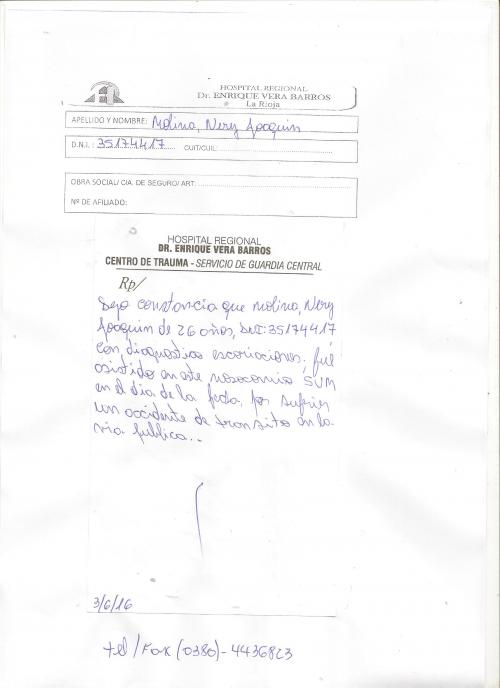 HOSPITAL REGIONAL
Dr. ENRIQUE VERA BARROS
La Rioja
APELLIDO Y NOMBRE: Molina, Nery Joaquin
D.N.I.: 35174417 CUIT/CUIL:
OBRA SOCIAL/ CIA. DE SEGURO/ ART:
Nº DE AFILIADO:
HOSPITAL REGIONAL
DR. ENRIQUE VERA BARROS
CENTRO DE TRAUMA - SERVICIO DE GUARDIA CENTRAL
Rp/
Dejo constancia que Molina, Nery
Joaquin de 26 años, DNI: 35174417
con diagnostico escoriaciones; fué
asistido en este nosocomio SVM
en el dia de la fecha, por sufrir
un accidente de transito en la
via publica..
3/6/16
tel/Fax (0380)-4436823